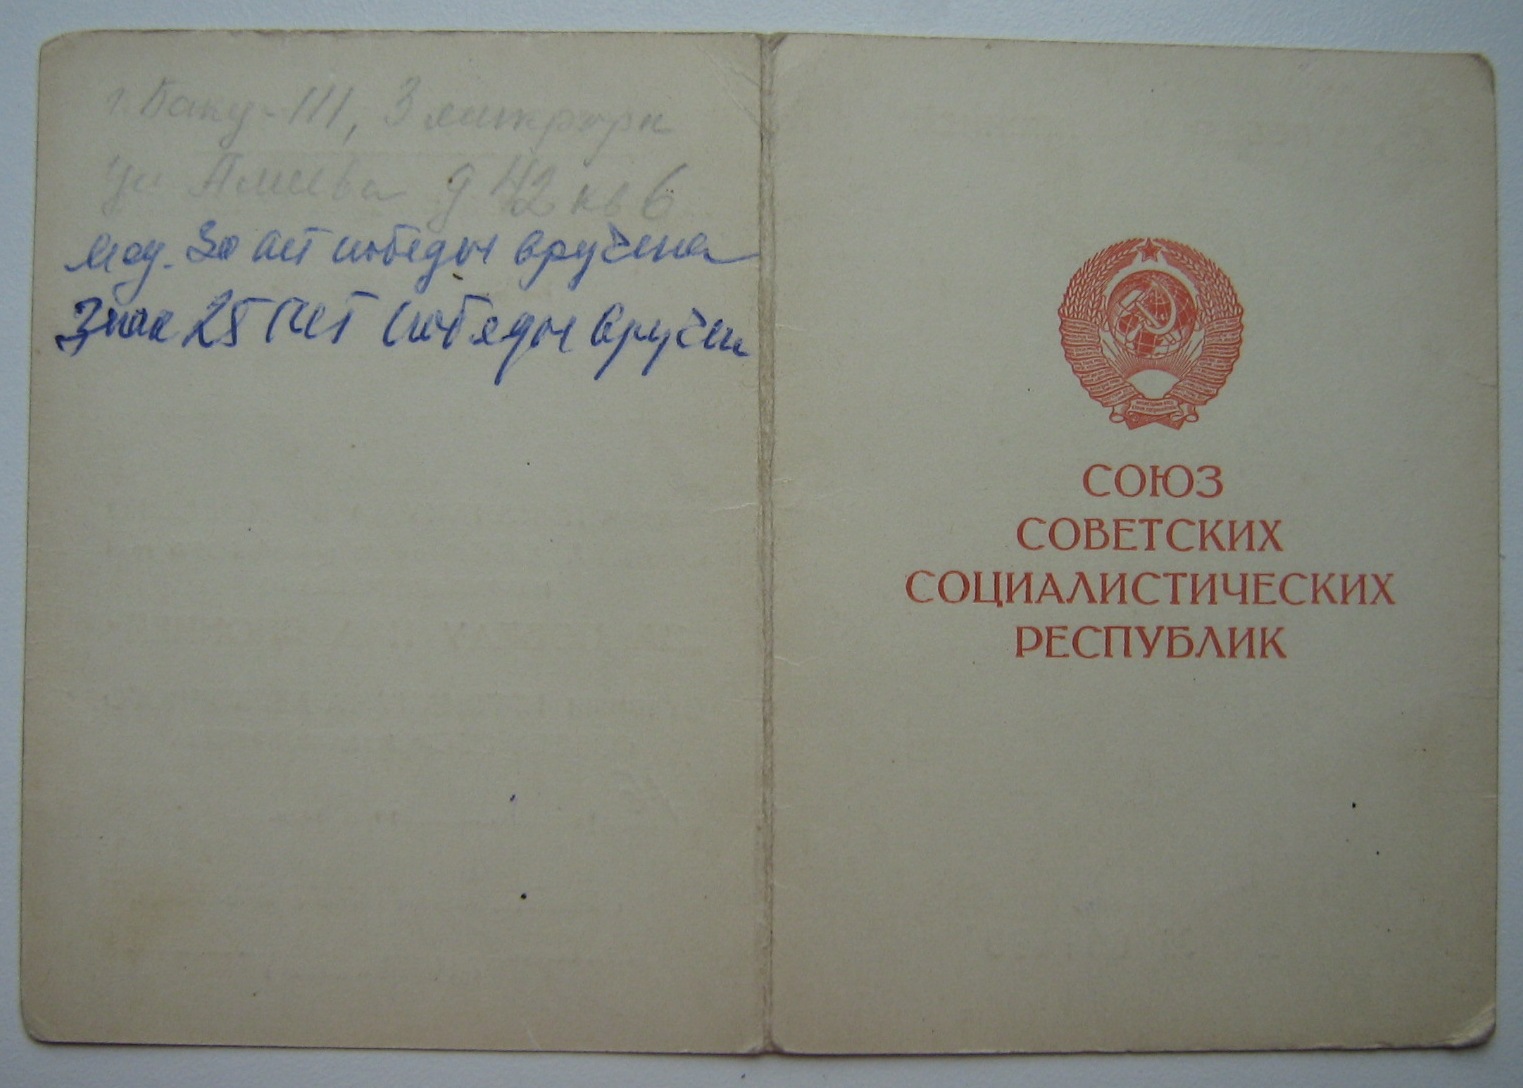 г. Баку-111, 3
ул д 42 кв 6
мед. 30 лет победы вручена
Знак 25 лет победы вручен
СОЮЗ
СОВЕТСКИХ
СОЦИАЛИСТИЧЕСКИХ
РЕСПУБЛИК